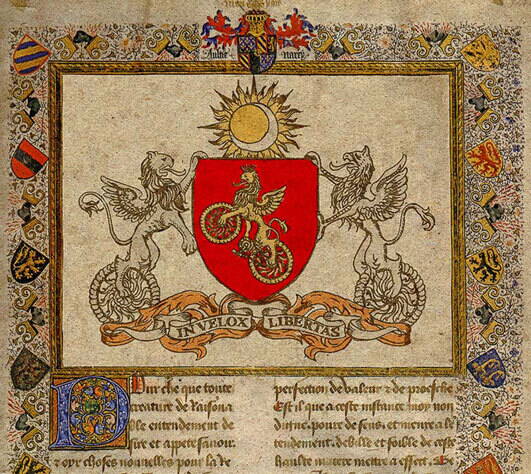 Aultre Narey
IN VELOX LIBERTAS
POur che que toute
creature de Raisona
ble entendement de
sire et appete savoir.
et oyr choses nouvelles pour la Re
perfection de valeur et de proesche.
Est il que a ceste instance moy non
digne, povre de sens, et menre a len
tendement debille et foible de ceste
haulte matere mettre a effect.